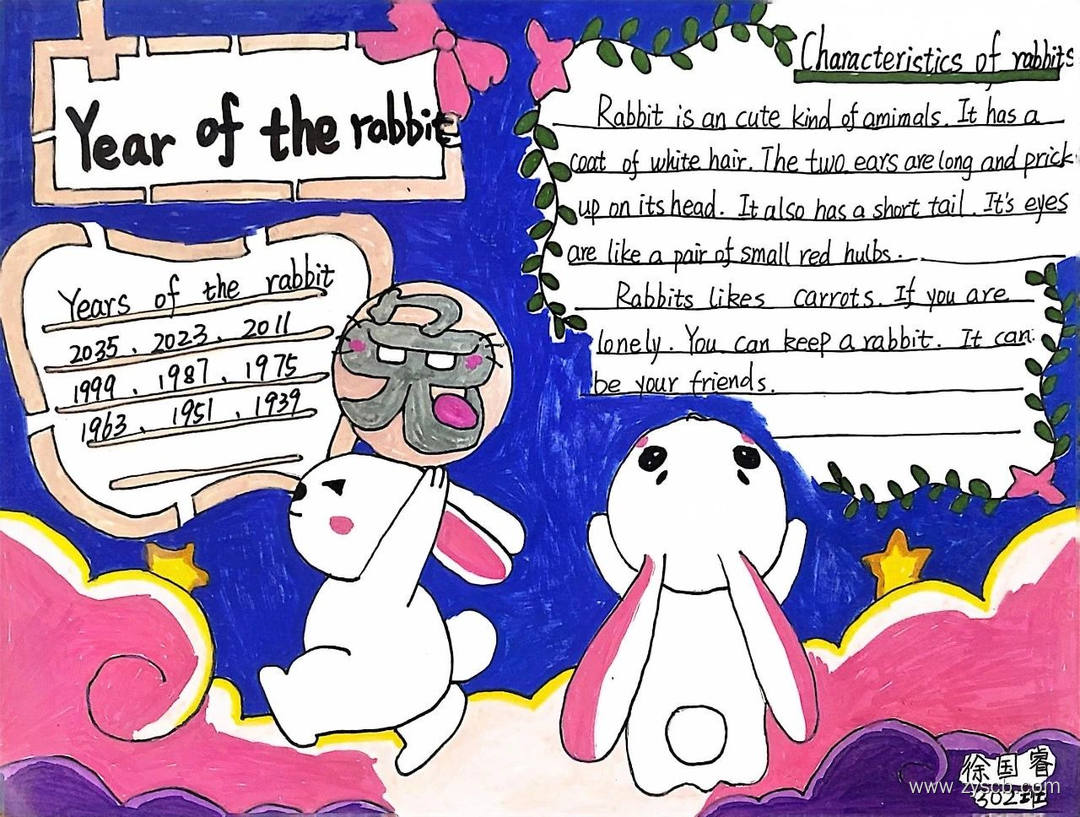 Year of the rabbit
Years of the rabbit
2035、2023、2011
1999、1987、1975
1963、1951、1939
兔
Characteristics of rabbits
Rabbit is an cute kind of amimals. It has a
coat of white hair. The two ears are long and prick
up on its head. It also has a short tail. It's eyes
are like a pair of small red hulbs.
Rabbits likes carrots. If you are
lonely. You can keep a rabbit. It can
be your friends.
徐国睿
302班
www.zyscb.com